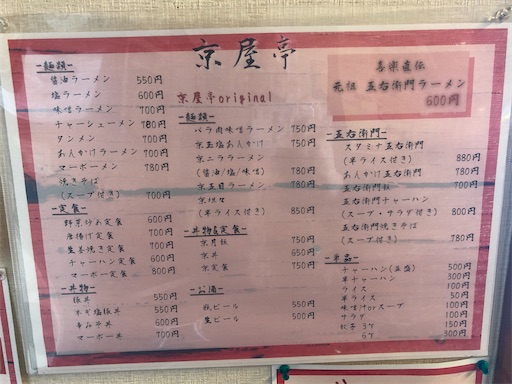 京屋亭
喜楽直伝
元祖 五右衛門ラーメン
600円
-麺類-
醤油ラーメン 550円
塩ラーメン 600円
味噌ラーメン 700円
チャーシューメン 780円
タンメン 700円
あんかけラーメン 700円
マーボーメン 780円
焼きそば
(スープ付き) 700円
-定食-
野菜炒め定食 600円
唐揚げ定食 700円
生姜焼き定食 700円
チャーハン定食 600円
マーボー定食 800円
-丼物-
豚丼 550円
ネギ塩豚丼 550円
辛み子丼 600円
マーボー丼 700円
京屋亭original
-麺類-
バラ肉味噌ラーメン 750円
京五塩あんかけ 750円
京ニララーメン
(醤油/塩/味噌) 780円
京五目ラーメン 780円
京坦々
(半ライス付き) 850円
-丼物&定食-
京月飯 700円
京丼 650円
京定食 750円
-お酒-
瓶ビール 550円
生ビール 500円
-五右衛門-
スタミナ五右衛門
(半ライス付き) 880円
あんかけ五右衛門 780円
五右衛門飯 700円
五右衛門チャーハン
(スープ・サラダ付き) 800円
五右衛門焼きそば
(スープ付き) 780円
-単品-
チャーハン(五盛) 500円
半チャーハン 300円
ライス 100円
半ライス 50円
味噌汁orスープ 100円
サラダ 100円
餃子 3ケ 150円
6ケ 300円